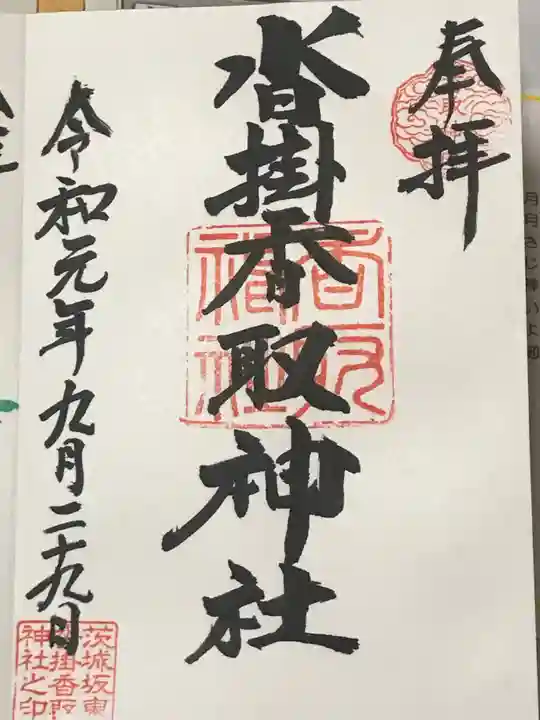 奉拝
沓掛香取神社
香取
神社
令和元年九月二十九日
茨城坂東
沓掛香取
神社之印